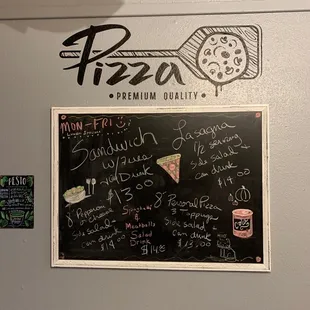 Pizza
• PREMIUM QUALITY •
MON-FRI
Lunch Specials
Sandwich
w/ Fries
and Drink
$13.00
Lasagna
1/2 serving
side salad +
can drink
$14.00
8" Pepperoni
or Cheese
side salad
can drink
$14.00
Spaghetti
&
Meatballs
Salad
Drink
$14.00
8" Personal Pizza
3 toppings
side salad +
can drink
$13.00
PESTO